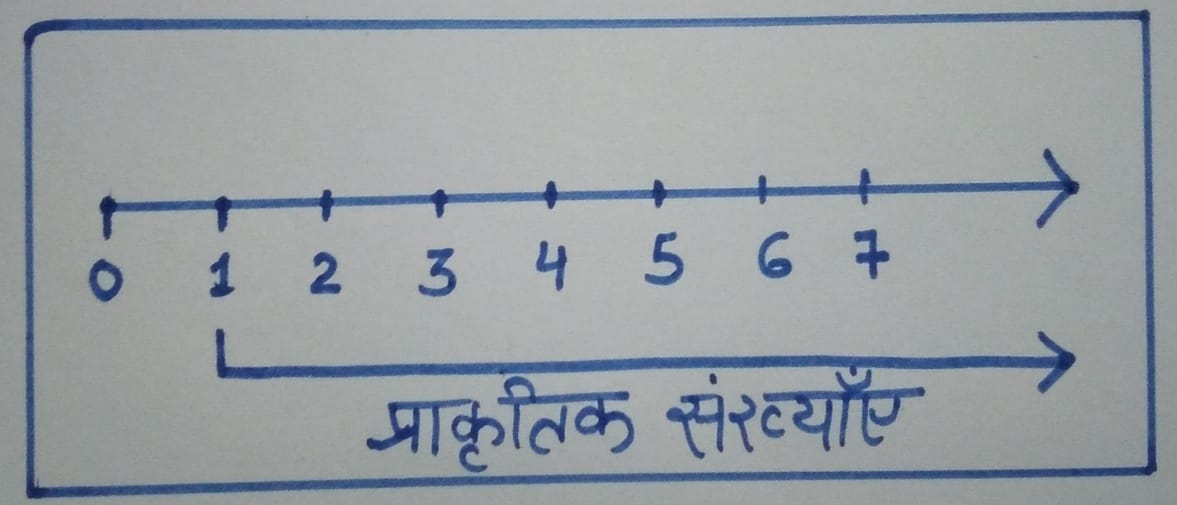 0 1 2 3 4 5 6 7
प्राकृतिक संख्याएँ